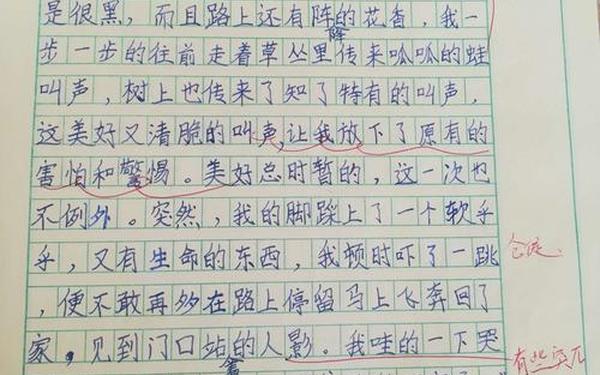 是很黑，而且路上还有阵阵的花香，我一
步一步的往前走着草丛里传来呱呱的蛙
叫声，树上也传来了知了特有的叫声，
这美好又清脆的叫声,让我放下了原有的
害怕和警惕。美好总时暂的，这一次也
不例外。突然，我的脚踩上了一个软乎
乎，又有生命的东西，我顿时吓了一跳
，便不敢再多在路上停留马上飞奔回了
家，见到门口站的人影。我哇的一下哭
有些突兀